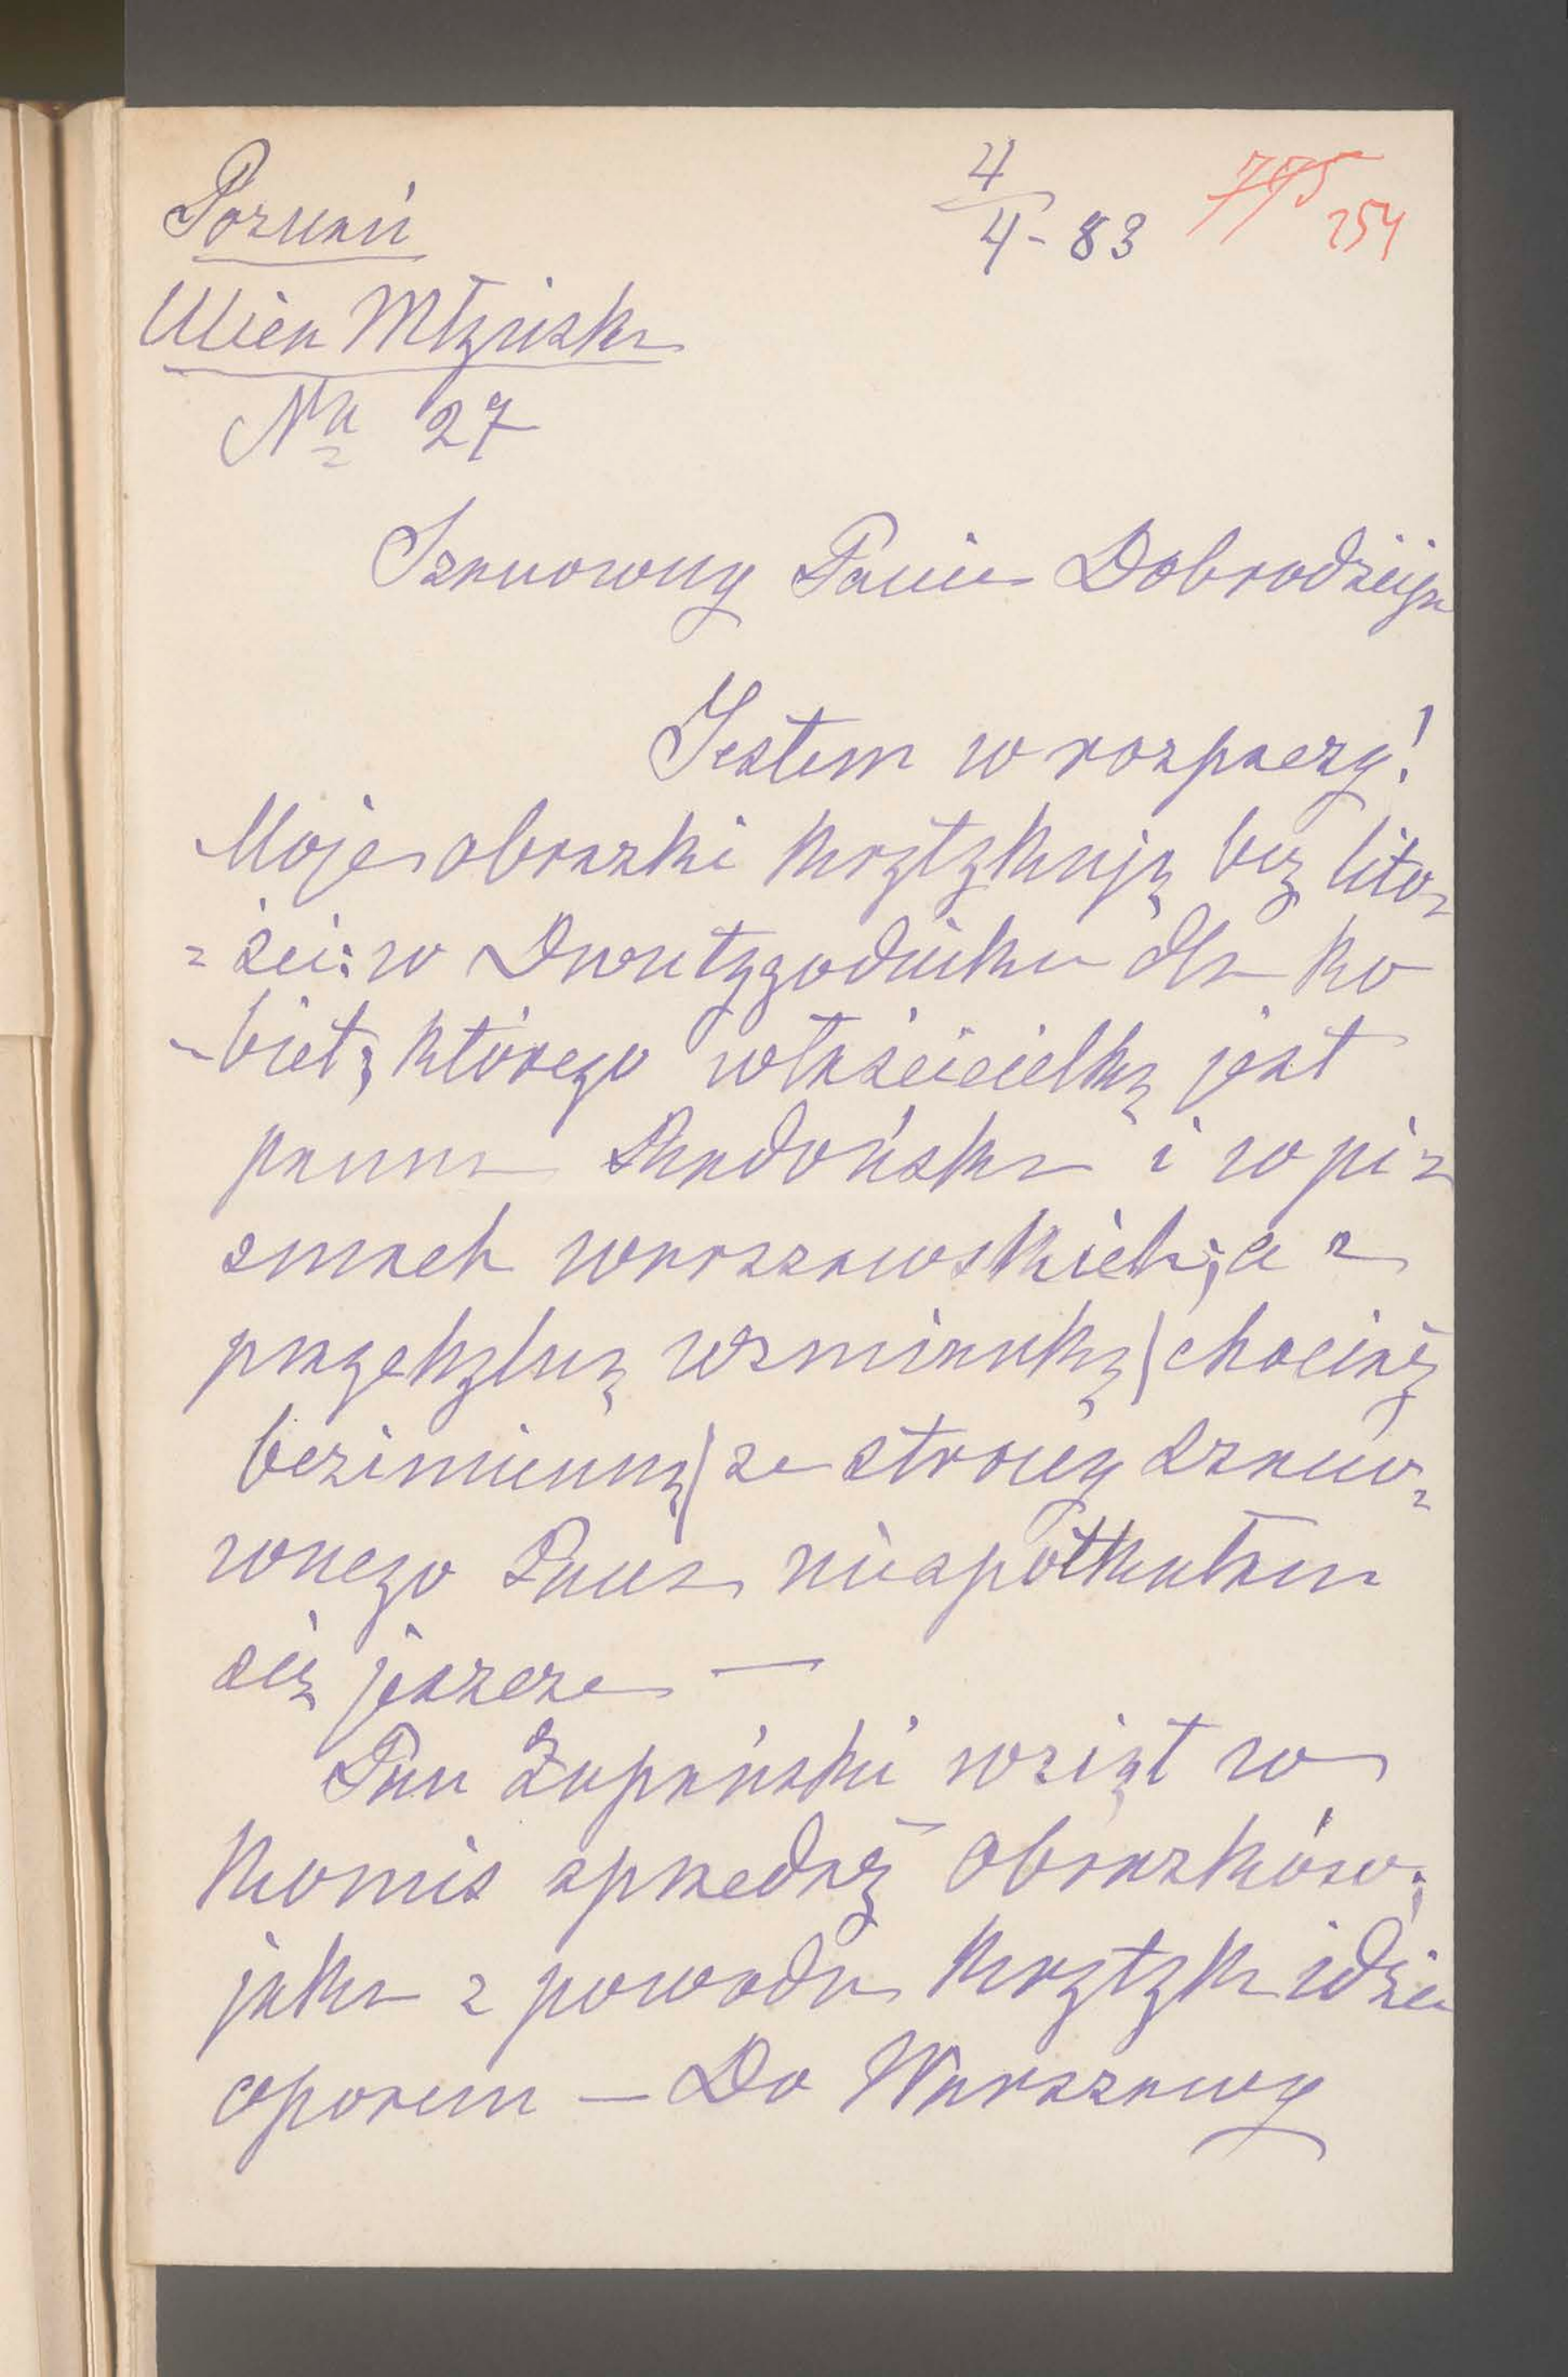 Poznań
4/4 - 83
775 254
Ulica Młyńska
No 27
Szanowny Panie Dobrodzieju
Jestem w rozpaczy!
Moje obrazki krytykują bez lito-
-ści: w Dwutygodniku dla ko
-biet; którego właścicielką jest
panna i w pi-
smach warszawskich; a z
przychylną wzmianką (chociaż
bezimienną) ze strony szano-
wnego Pana niespotkałam
się jeszcze —
Pan Żupański wziął w
komis sprzedaż obrazków;
jaka z powodu krytyk idzie
oporem — Do Warszawy